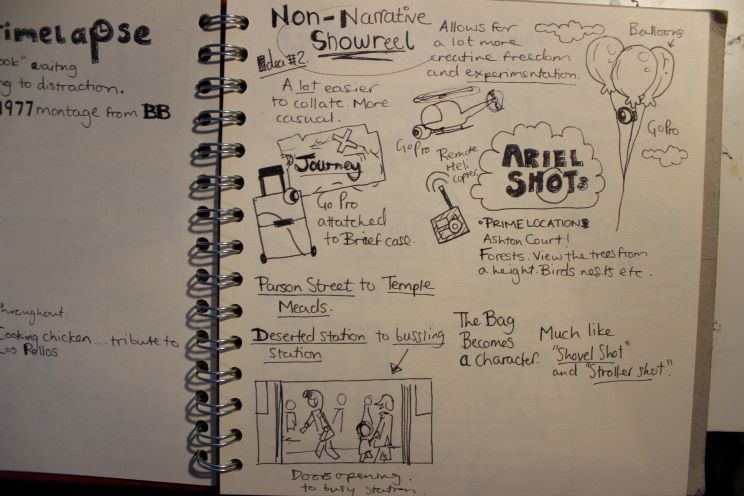 Timelapse
ook" waitng
ng to distraction.
1977 montage from BB
throughout.
Cooking chicken... tribute to
Los Pollos
Non-Narrative
Showreel
Idea #2.
Allows for
a lot more
creatine freedom
and experimentation.
Balloons
A lot easier
to collate. More
casual.
GoPro
GoPro
"Journey"
Remote
Heli
copter
ARIEL
SHOTs
Go Pro
attatched
to Brief case.
•PRIME LOCATIONS
Ashton Court!
Forests. View the trees from
a height. Birds nests etc.
Parson Street to Temple
Meads.
Deserted station to bussling
station
The Bag
Becomes
a character.
Much like
"Shovel Shot"
and "Stroller shot".
Doors opening
to busy station.